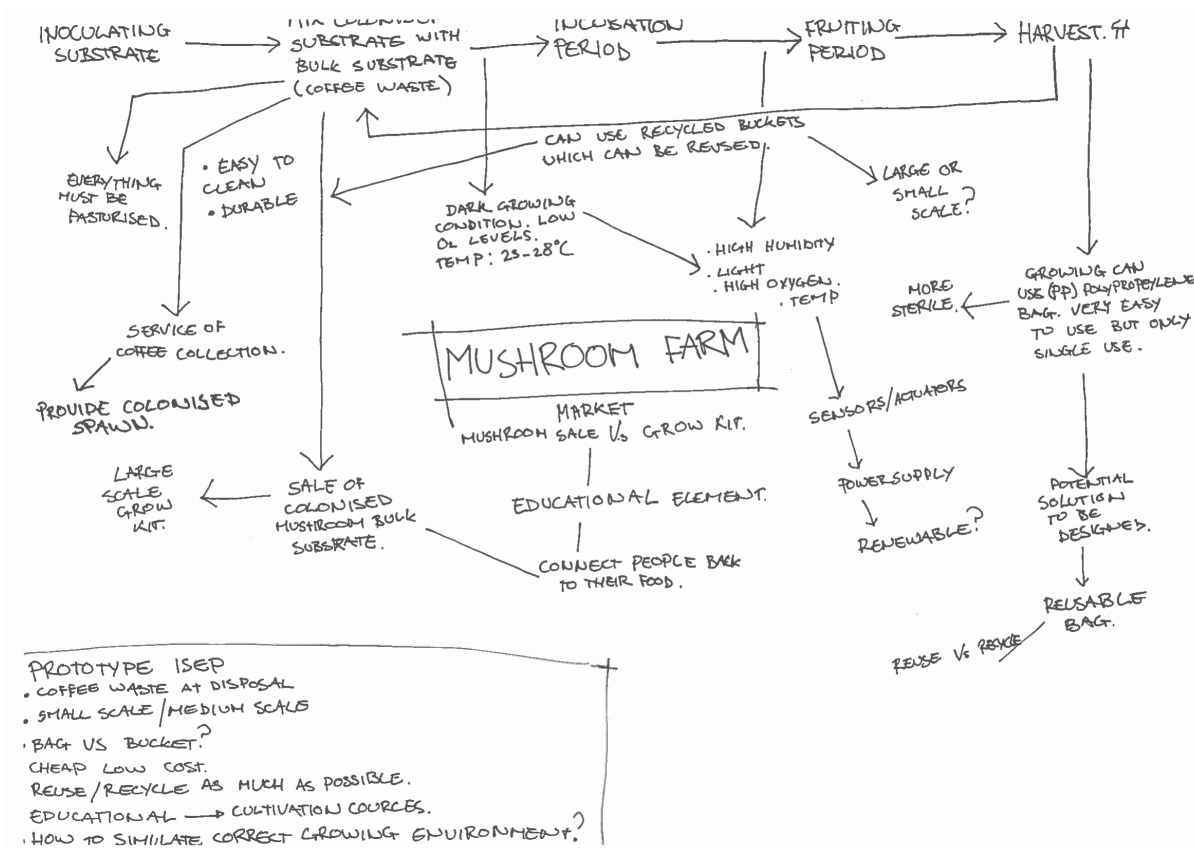 INOCULATING
SUBSTRATE
MIX COLONISED
SUBSTRATE WITH
BULK SUBSTRATE
(COFFEE WASTE)
INCUBATION
PERIOD
FRUITING
PERIOD
HARVEST.
EVERYTHING
MUST BE
PASTURISED.
• EASY TO
CLEAN
• DURABLE
CAN USE RECYCLED BUCKETS
WHICH CAN BE REUSED.
LARGE OR
SMALL
SCALE?
DARK GROWING
CONDITION. LOW
O2 LEVELS.
TEMP: 25-28°C
• HIGH HUMIDITY
• LIGHT
• HIGH OXYGEN.
• TEMP
MORE
STERILE.
GROWING CAN
USE (PP) POLYPROPEYLENE
BAG. VERY EASY
TO USE BUT ONLY
SINGLE USE.
SERVICE OF
COFFEE COLLECTION.
PROVIDE COLONISED
SPAWN.
MUSHROOM FARM
MARKET
MUSHROOM SALE Vs GROW KIT.
SENSORS/ACTUATORS
LARGE
SCALE
GROW
KIT.
SALE OF
COLONISED
MUSHROOM BULK
SUBSTRATE.
EDUCATIONAL ELEMENT.
POWERSUPPLY
POTENTIAL
SOLUTION
TO BE
DESIGNED.
RENEWABLE?
CONNECT PEOPLE BACK
TO THEIR FOOD.
REUSABLE
BAG.
REUSE Vs RECYCLE
PROTOTYPE ISEP
• COFFEE WASTE AT DISPOSAL
• SMALL SCALE/MEDIUM SCALE
• BAG VS BUCKET?
CHEAP LOW COST.
REUSE/RECYCLE AS MUCH AS POSSIBLE.
EDUCATIONAL → CULTIVATION COURCES.
• HOW TO SIMILATE CORRECT GROWING ENVIRONMENT?